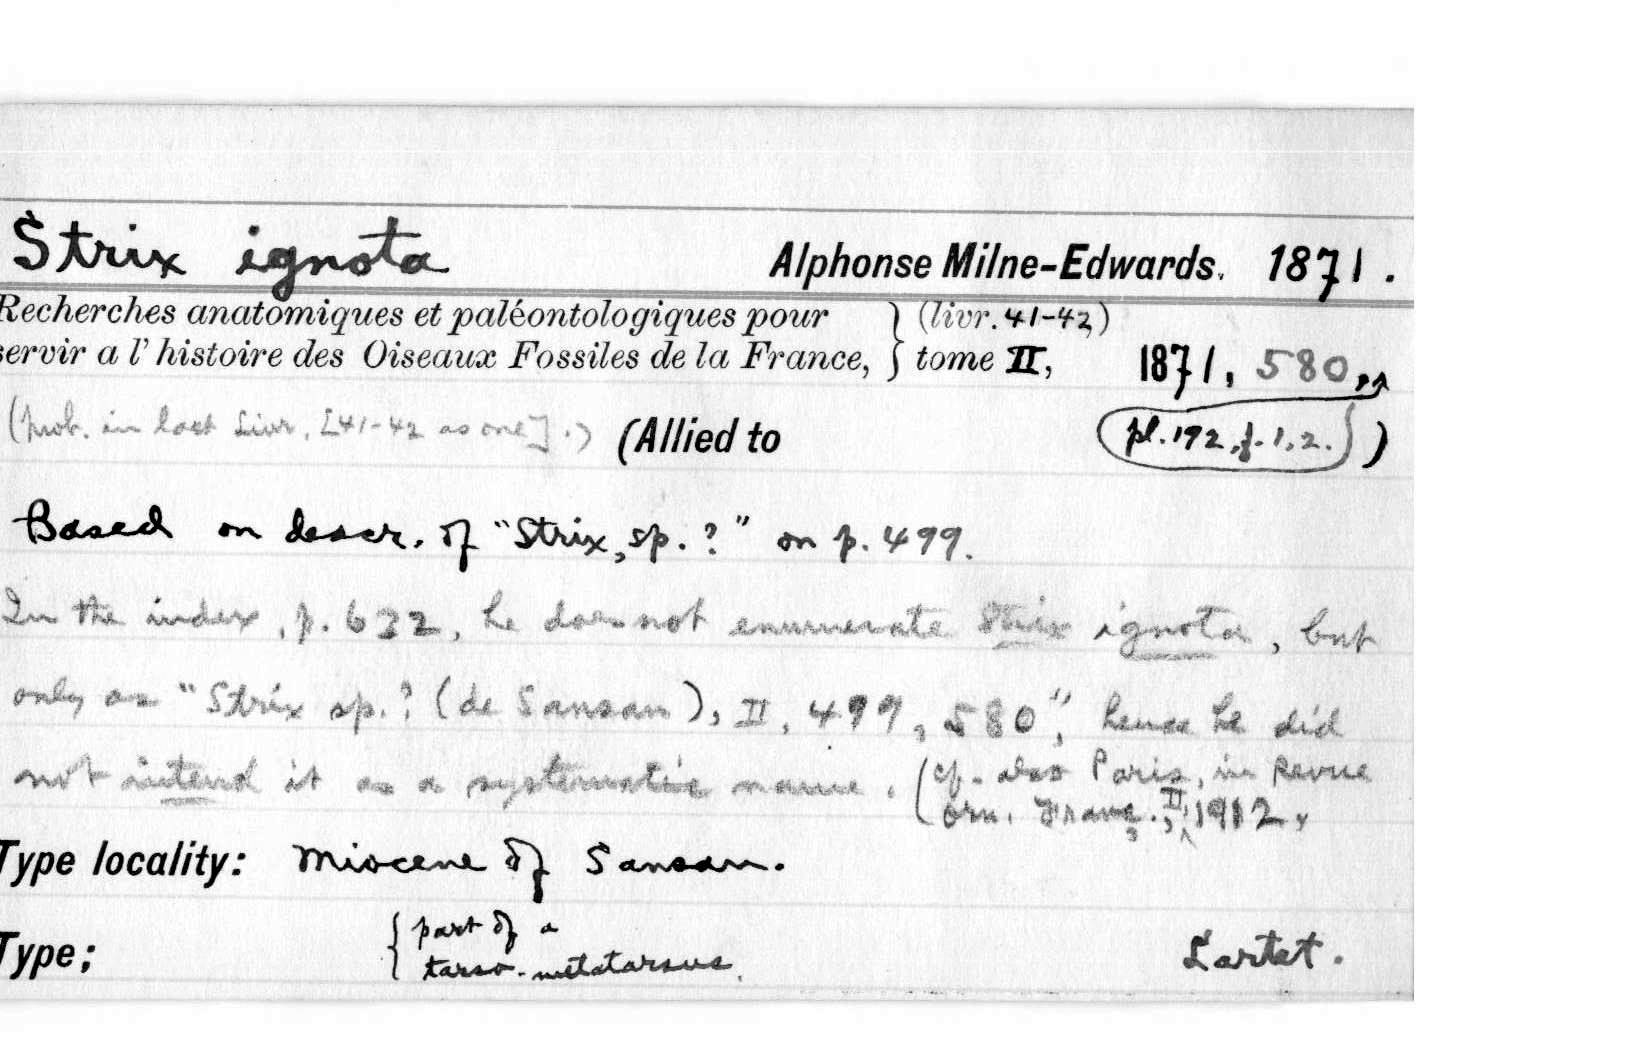 Strix ignota Alphonse Milne-Edwards. 1871.
Recherches anatomiques et paléontologiques pour } (livr. 41-42)
servir a l'histoire des Oiseaux Fossiles de la France, } tome II, 1871, 580,
(prob. in last Livr. [41-42 as one].) (Allied to pl. 192, f. 1, 2.)
Based on descr. of "Strix, sp.?" on p. 499.
In the index, p. 632, he does not enumerate Strix ignota, but
only as "Strix sp.? (de Sansan), II, 499, 580", hence he did
not intend it as a systematic name. (cf. also Paris, in Revue
Orn. Franç., II, 1912,
Type locality: Miocene of Sansan.
Type; { part of a
tarso-metatarsus. Lartet.